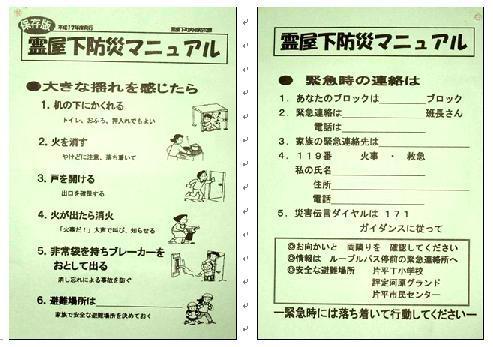 保存版
平成17年度発行
霊屋下防災マニュアル
●大きな揺れを感じたら
1. 机の下にかくれる
トイレ、おふろ、押入れでもよい
2. 火を消す
やけどに注意、落ち着いて
3. 戸を開ける
出口を確保する
4. 火が出たら消火
「火事だ!」大声で叫び、知らせる
5. 非常袋を持ちブレーカーを
おとして出る
消し忘れによる事故を防ぐ
6. 避難場所は
家族で安全な避難場所を決めておく
霊屋下防災マニュアル
● 緊急時の連絡は
1. あなたのブロックは ブロック
2. 緊急連絡は 班長さん
電話は
3. 家族の緊急連絡先は
4. 119番 火事 ・ 救急
私の氏名
住所
電話
5. 災害伝言ダイヤルは 171
ガイダンスに従って
◎お向かいと 両隣りを 確認してください
◎情報は ループルバス停前の緊急連絡所へ
◎安全な避難場所 片平丁小学校
評定河原グランド
片平市民センター
ー緊急時には落ち着いて行動してくださいー